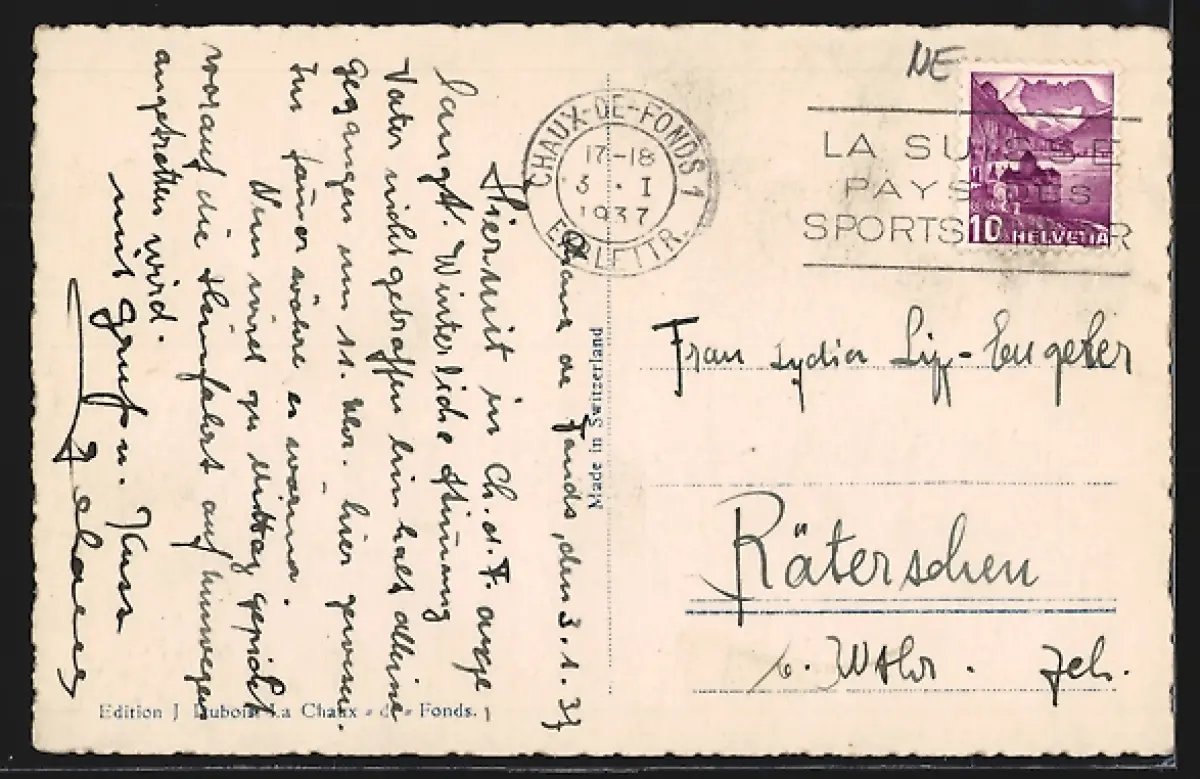 NE
CHAUX-DE-FONDS 1
17-18
3. I
1937
EXP. LETTR.
LA SUISSE
PAYS DES
SPORTS D'HIVER
10 HELVETIA
Chaux de Fonds, den 3.1.37
Hiermit in Ch.d.F. ange
langt. Winterliche Stimmung
Vater nicht getroffen bin halt alleine
gegangen um 11. Uhr. hier gewesen.
Im Januar währe es warm.
Nun wird zu Mittag gespiest
worauf die Heimfahrt auf hinwegen
angetretten wird.
mit Gruss u. Kuss
Made in Switzerland
Frau Lydia
Räterschen
b. Wthr. Zch.
Edition J Dubois, La Chaux-de-Fonds.